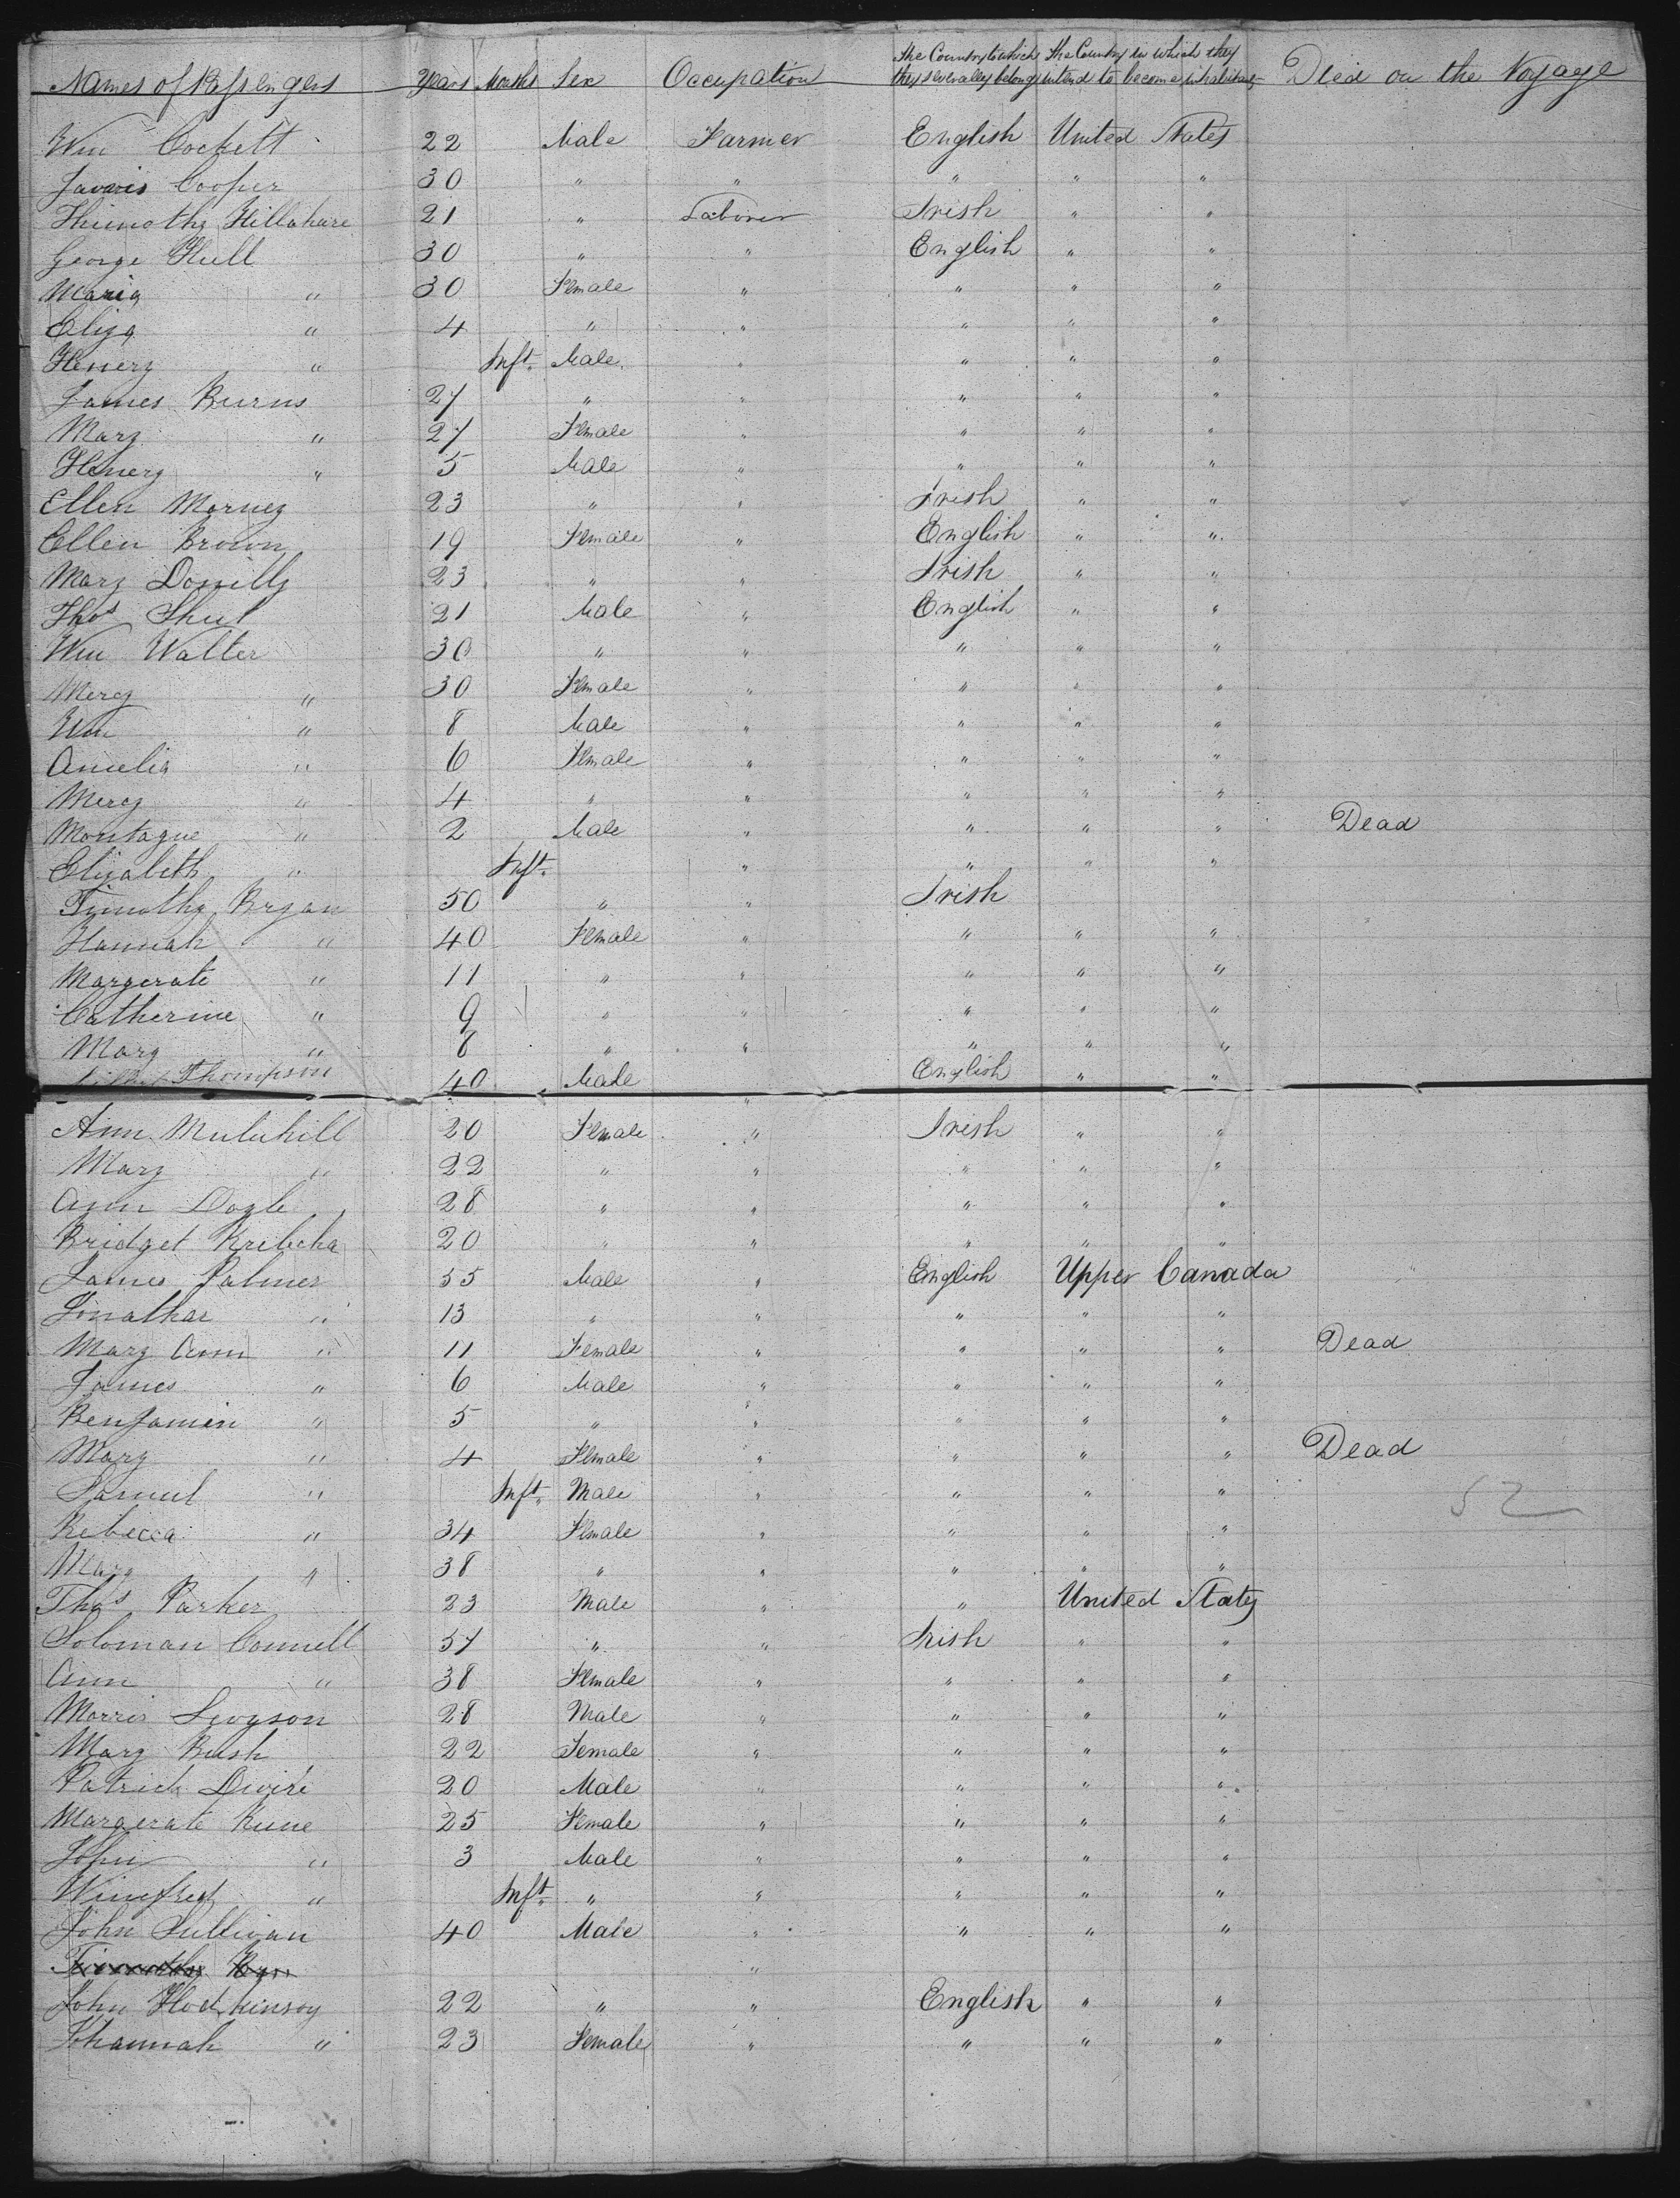 Names of Passengers Years Months Sex Occupation The Country to which they severally belong The Country in which they intend to become inhabitants Died on the Voyage
Wm Cockett 22 Male Farmer English United States
Jarvis Cooper 30 " " " " "
Thimothy Hillahare 21 " Laborer Irish " "
George Hull 30 " " English " "
Maria " 30 Female " " " "
Eliza " 4 " " " " "
Henery " Inft. Male " " " "
James Burns 27 " " " " "
Mary " 27 Female " " " "
Henery " 5 Male " " " "
Ellen Morney 23 " " Irish " "
Ellen Brown 19 Female " English " "
Mary Donilly 23 " " Irish " "
Thos 21 Male " English " "
Wm Walter 30 " " " " "
Mercy " 30 Female " " " "
Wm " 8 Male " " " "
Amelia " 6 Female " " " "
Mercy " 4 " " " " "
Montague " 2 Male " " " " Dead
Elizabeth " Inft. " " " "
Timothy Bryan 50 " " Irish
Hannah " 40 Female " " " "
Margerate " 11 " " " " "
Catherine " 9 " " " " "
Mary " 8 " " " " "
Thompson 40 Male " English " "
Ann Muluhill 20 Female " Irish " "
Mary " 22 " " " " "
Ann Doyle 28 " " " " "
Bridget 20 " " " " "
James Palmer 55 Male " English Upper Canada
Jonathan " 13 " " " " "
Mary Ann " 11 Female " " " " Dead
James " 6 Male " " " "
Benjamin " 5 " " " " "
Mary " 4 Female " " " " Dead
Samuel " Inft. Male " " " "
52
Rebecca " 34 Female " " " "
Mary " 38 " " " " "
Thos Parker 23 Male " " United States
Soloman Connell 57 " " Irish " "
Ann " 38 Female " " " "
Morris 28 Male " " " "
Mary Bush 22 Female " " " "
Patrick Dwire 20 Male " " " "
Margerate Kune 25 Female " " " "
John " 3 Male " " " "
Winefred " Inft. " " " " "
John Sullivan 40 Male " " " "
Timothy "
John Hodkinson 22 " " English " "
Johannah " 23 Female " " " "